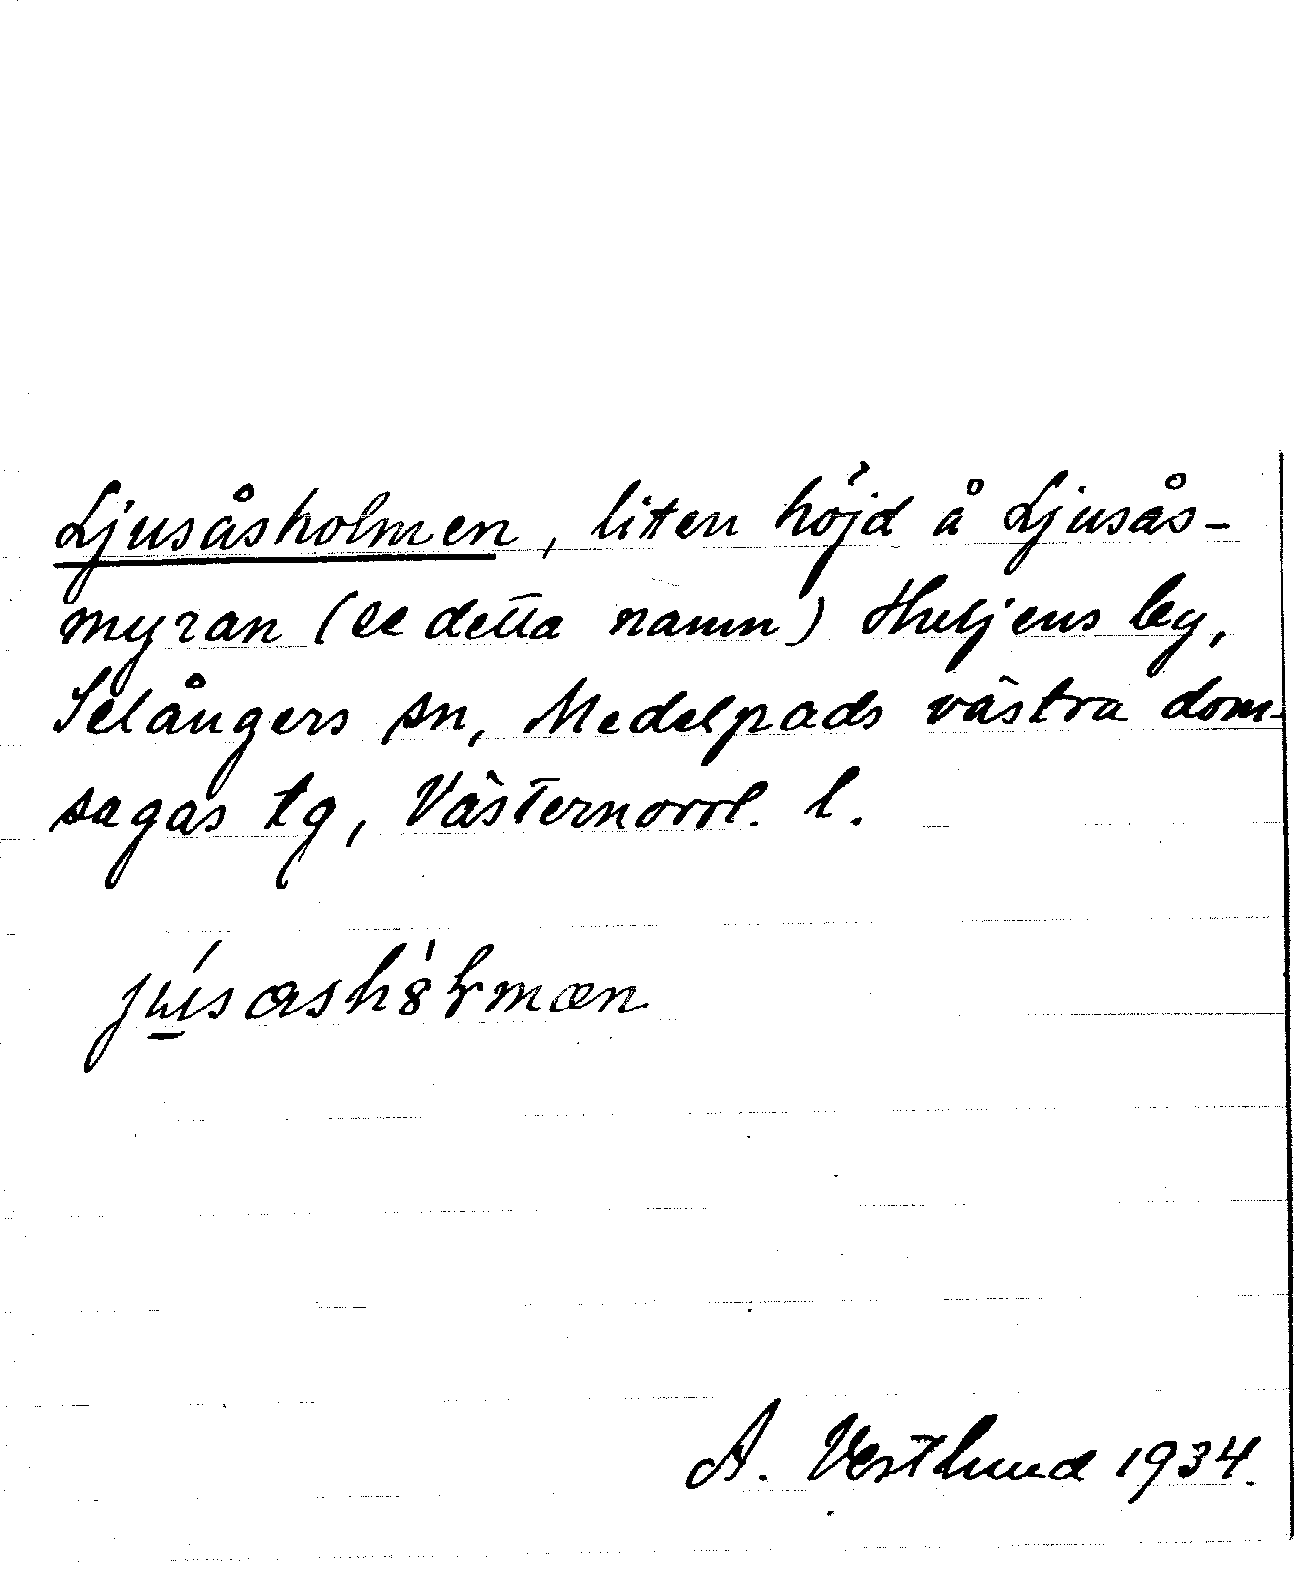 Ljusåsholmen, liten höjd å Ljusås-
myran (se detta namn) Huljens by,
Selångers sn, Medelpads västra dom-
sagas tg, Västernorrl. l.
A. Vestlund 1934.